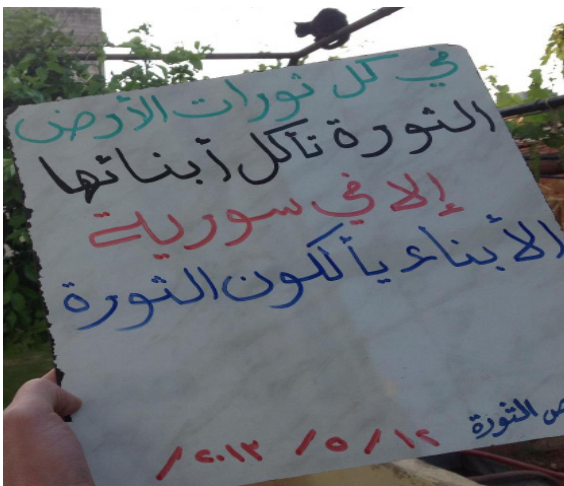 في كل ثورات الأرض
الثورة تأكل أبنائها
إلا في سورية
الأبناء يأكلون الثورة
الثورة
١٢ / ٥ / ٢٠١٣ /